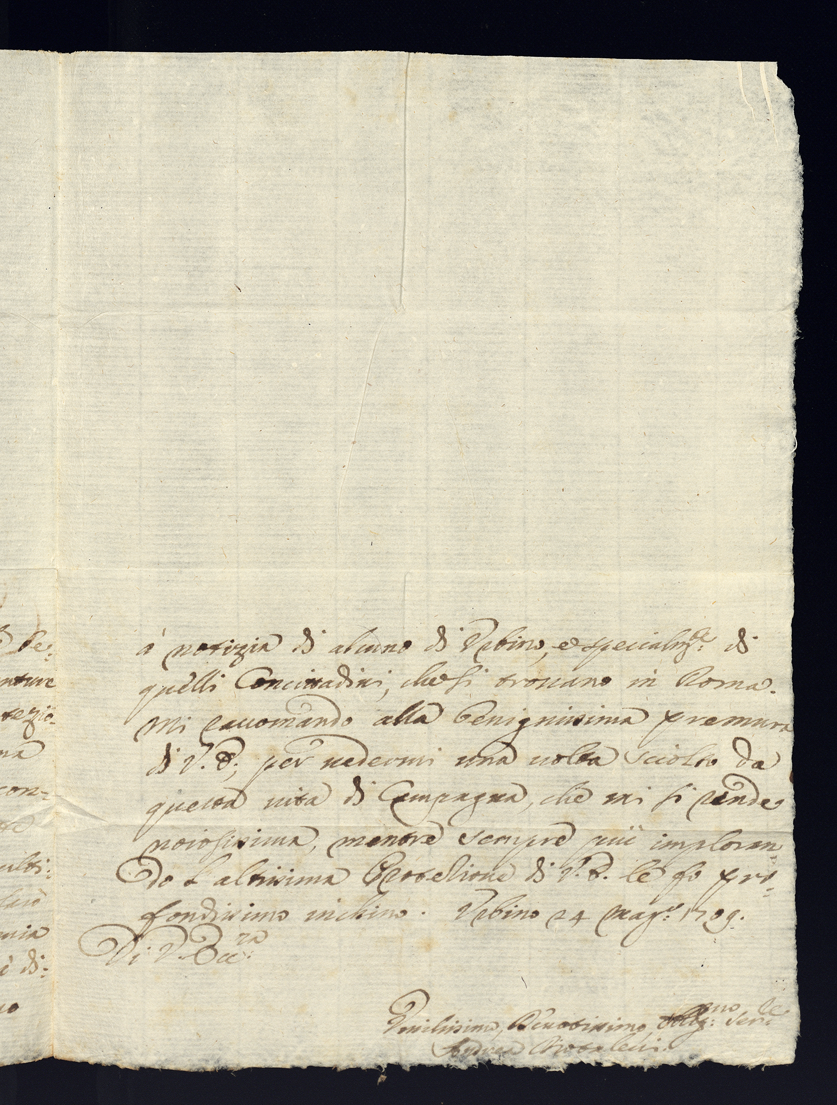 à notizia di alcuno di Urbino, e specialm.te di
quelli Concittadini, che si trovano in Roma.
Mi raccomando alla benignissima premura
di V.E., per vedermi una volta sciolto da
questa vita di Campagna, che mi si rende
noiosissima, mentre sempre più imploran
do l'altissima Protezione di V.E. le fo pro=
fondissimo inchino. Urbino 24 Mag.o 1709.
Di V. Ecc.za
Umilissimo, Devotissimo, Obblig.mo Ser.e
Andrea